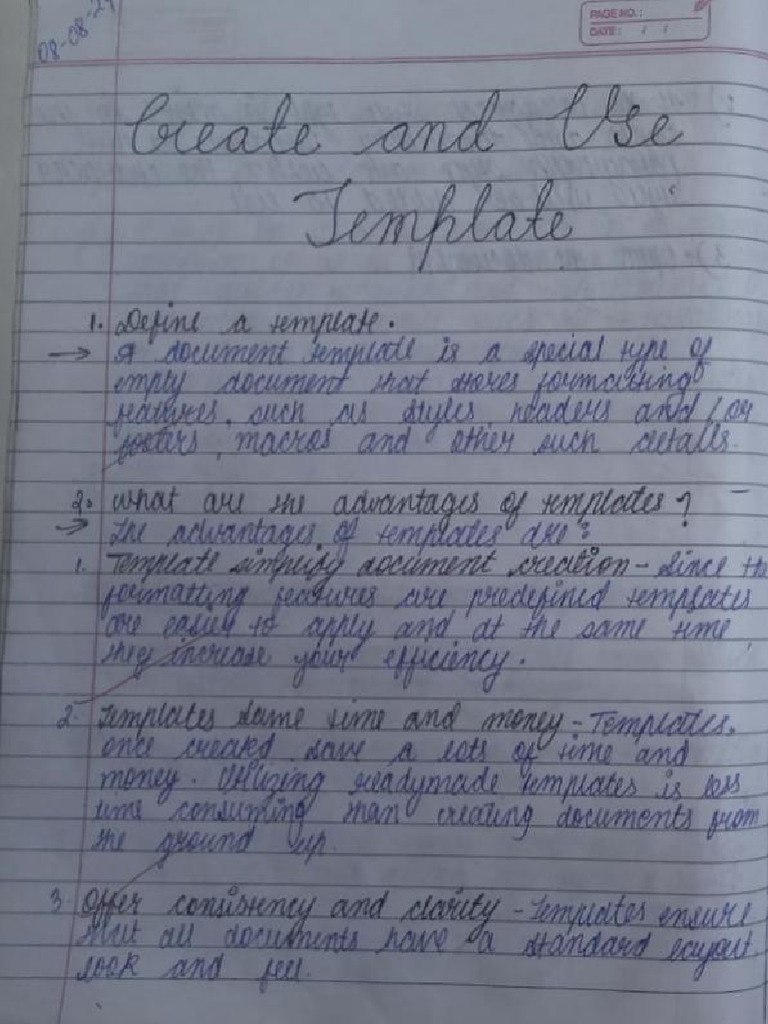 08-08-24
PAGE NO.:
DATE: / /
Create and Use
Template
1. Define a template.
→ A document template is a special type of
empty document that stores formatting
features, such as styles, headers and/or
footers, macros and other such details.
2. What are the advantages of templates?
→ The advantages of templates are:
1. Template simplify document creation - Since the
formatting features are predefined templates
are easier to apply and at the same time,
they increase your efficiency.
2. Templates same time and money - Templates,
once created save a lots of time and
money. Utilizing readymade templates is less
time consuming than creating documents from
the ground up.
3. Offer consistency and clarity - Templates ensure
that all documents have a standard layout
look and feel.